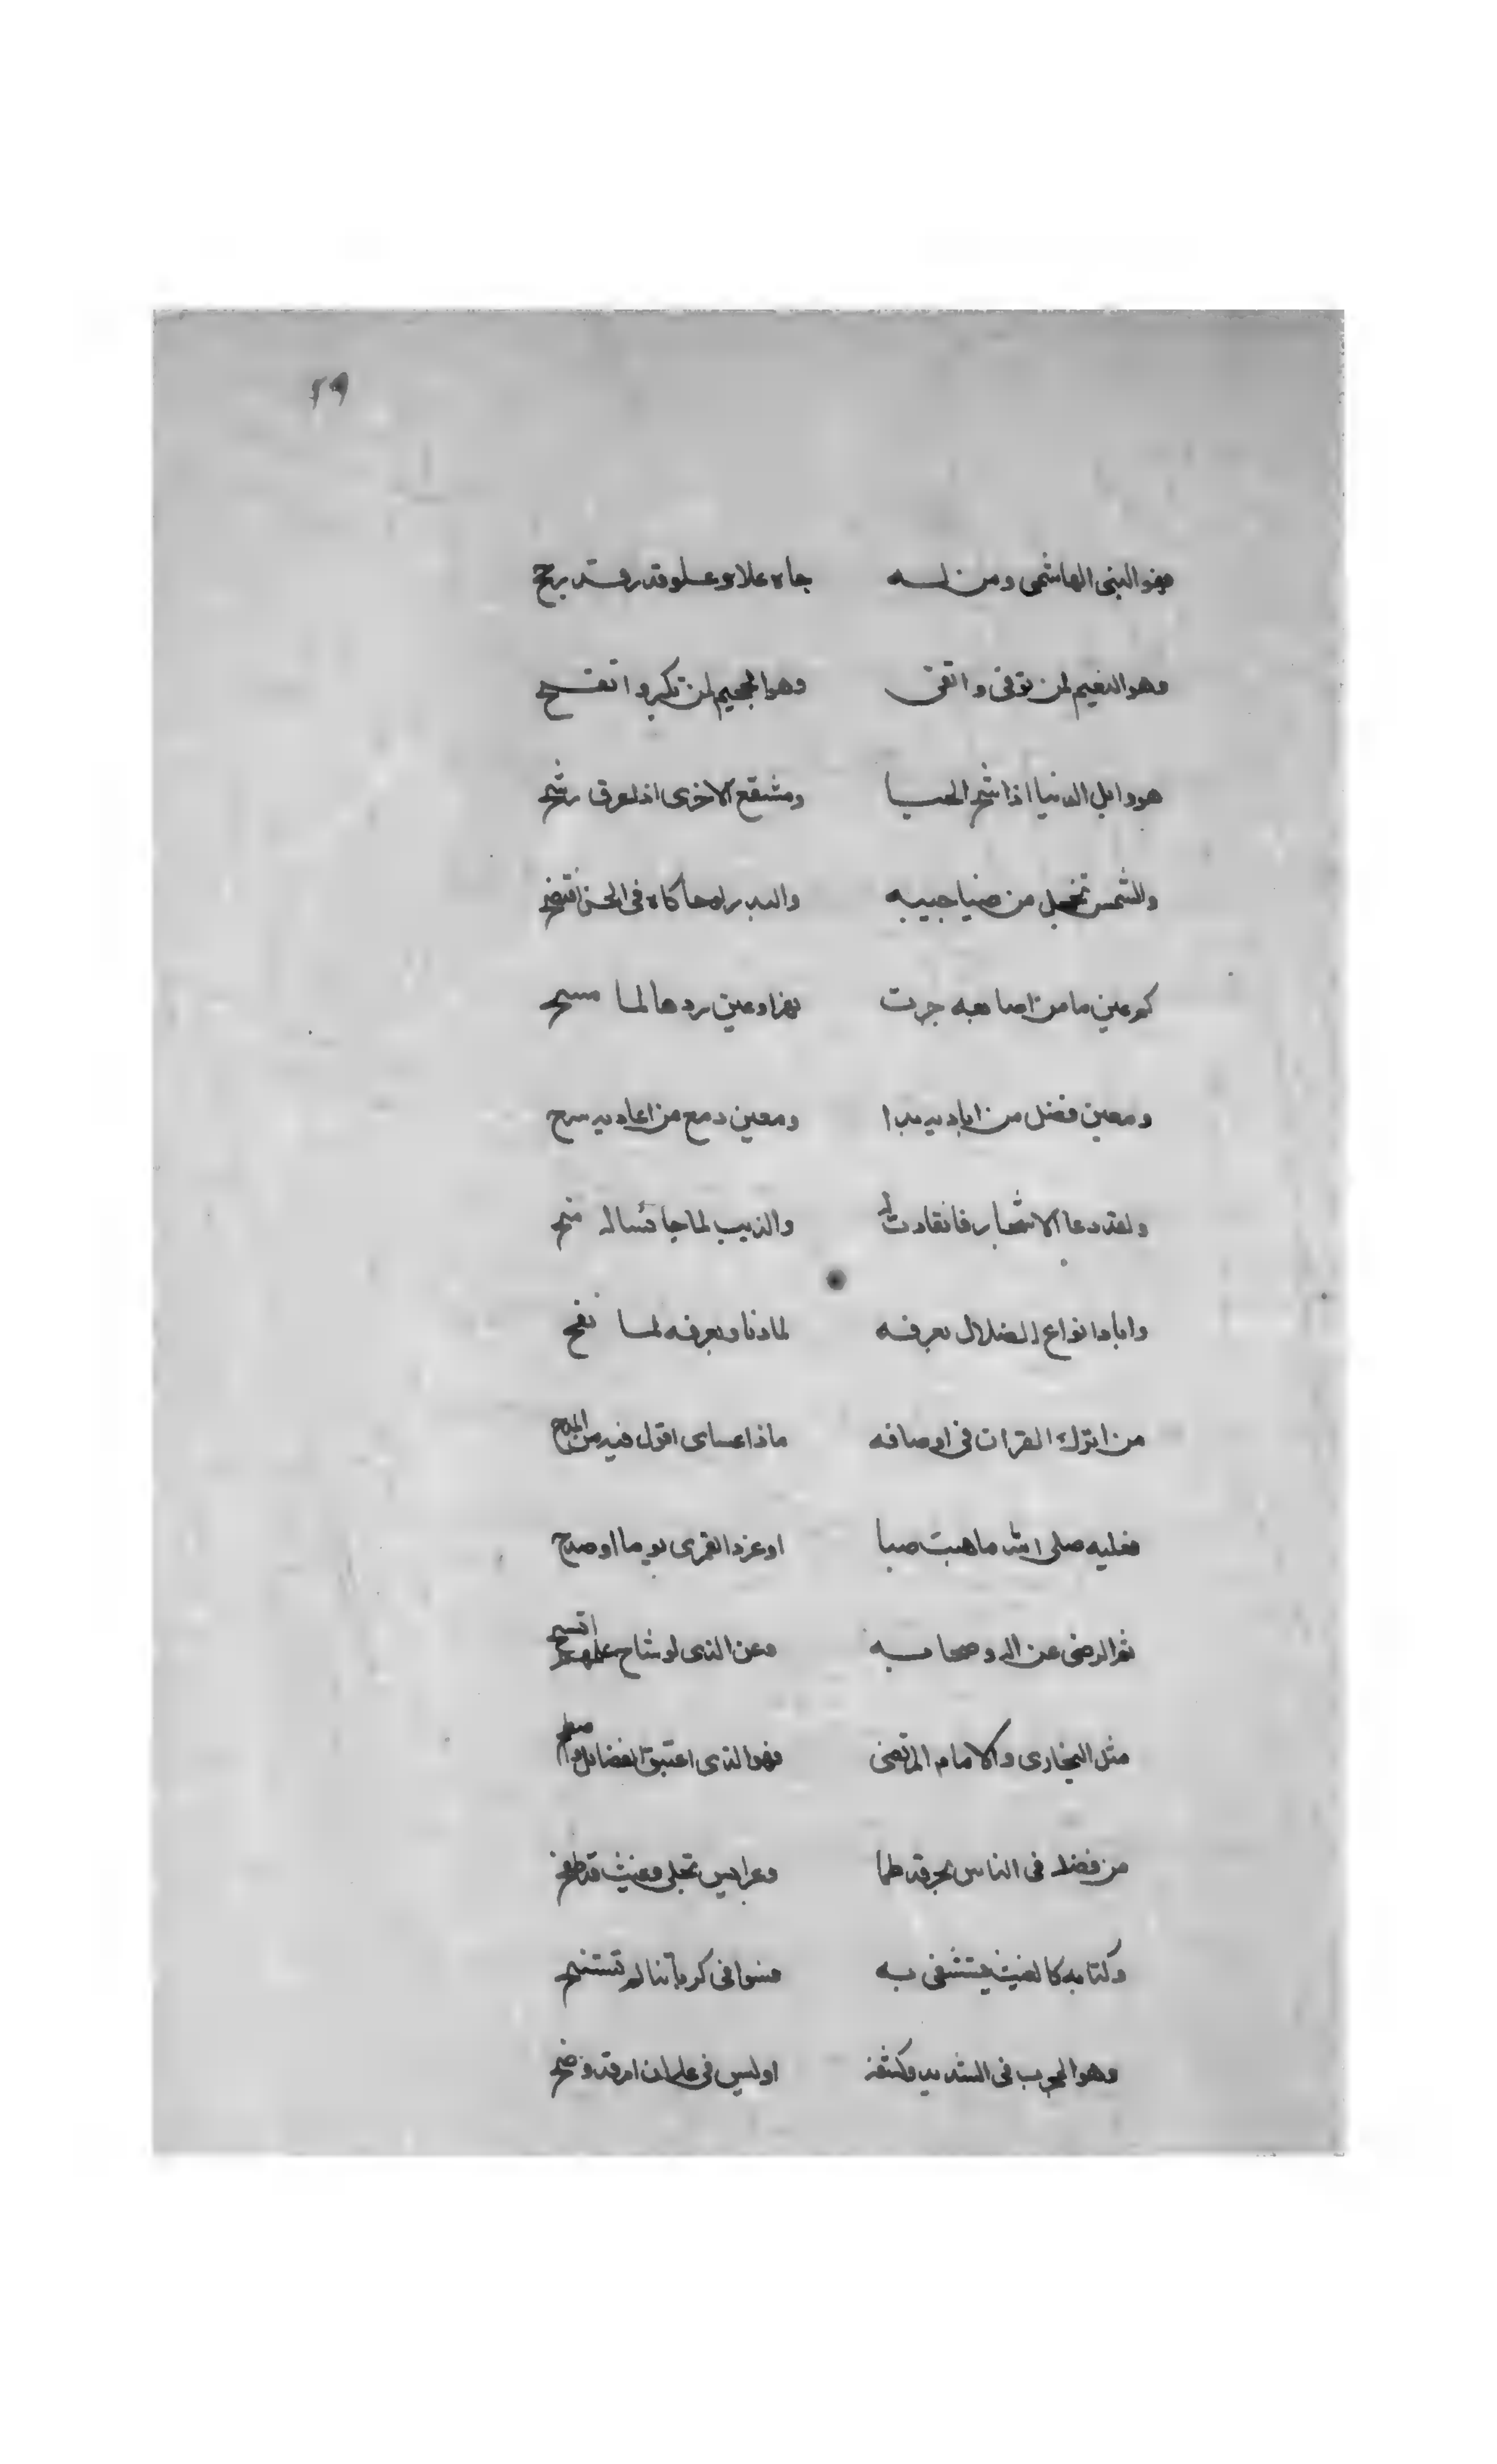 ٢٩
فهو النبى الهاشمى ومن له جاه علا وعلو قدر قد رجح
وهو النعيم لمن توقى واتقى وهو الجحيم لمن تكبر واتقح
هو وابل الدنيا اذا شح الحيا ومشفع الاخرى اذا عرق رشح
والشمس تخجل من ضيا جبينه والبدر لو حاكاه فى الحسن افتضح
كم عين ما من اصابعه جرت نهرا وعين ردها لما مسح
ومعين فضل من اياديه بدا ومعين دمع من اعاديه سح
ولقد دعا الاشجار فانقادت له والذيب لما جا تساله منح
وابادا نواع الضلال بعرفه لما دنا وبعرفه لما نفح
من انزل القران فى اوصافه ماذا عساى اقول فيه من المدح
فعليه صلى الله ما هبت صبا او غرد القمرى يوما او صدح
ثم الرضى عن اله وصحابه وعن الذى
مثل البخارى والامام المرتضى فهو الذى اعتبق الفضايل واصطبح
من فضله فى الناس بحر قد طما وعرايس تجلى وغيث قد طفح
وكتابه كالغيث يستشفى به
وهو المجرب فى الشديد وكشفه اوليس فى